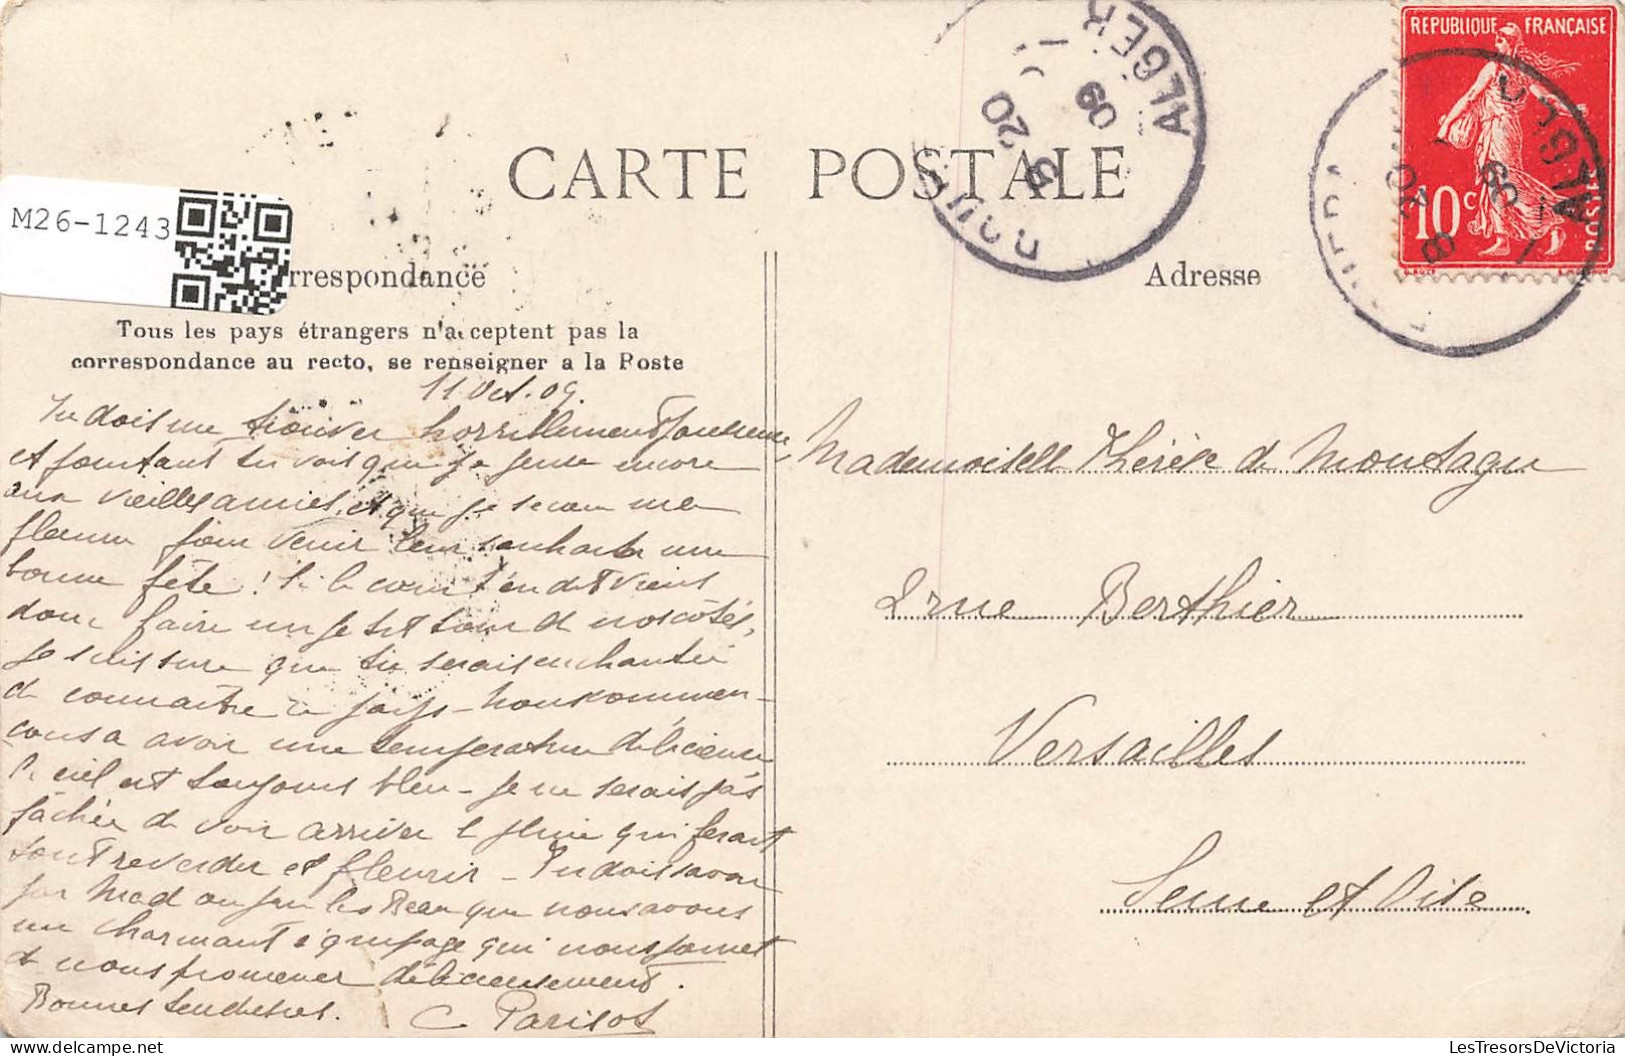 REPUBLIQUE FRANÇAISE
10c
POSTES
ALGER
20
09
ALGER
CARTE POSTALE
M26-1243
rrespondance
Adresse
Tous les pays étrangers n'acceptent pas la
correspondance au recto, se renseigner a la Poste
11 Oct. 09.
Tu dois me trouver horriblement
et pourtant tu vois que je pense encore
aux vieilles amies, et que je secoue ma
flemme pour venir leur souhaiter une
bonne fête ! Si le cœur t'en dit viens
donc faire un petit tour de nos côtés,
je suis sure que tu serais enchantée
de connaître ce pays - nous commen-
çons a avoir une temperature délicieuse
le ciel est toujours bleu - je ne serais pas
fâchée de voir arriver la pluie qui ferait
tout reverdir et fleurir - Tu dois savoir
par Mad ou par les que nous avons
un charmant équipage qui nous permet
de nous promener délicieusement.
Bonnes tendresses. C Parisot
Mademoiselle Thérèse de Montagu
2 rue Berthier
Versailles
Seine et Oise.
LesTresorsDeVictoria